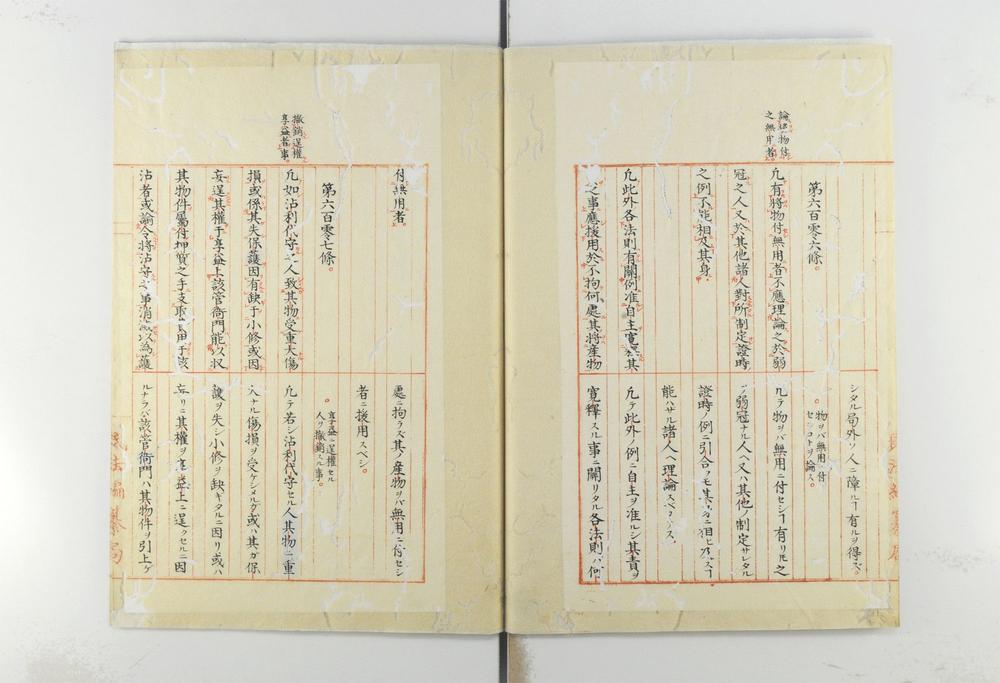 論於物付
之無用者
第六百零六條。
凡有將物付無用者不應理論之於弱
冠之人又於其他諸人對所制定證時
之例不能相及其身。
凡此外各法則有關例准自主寛其
之事應援用於不拘何處其將産物
シタル局外ノ人ニ障ルヿ有ルヲ得ズ。
物ヲバ無用ニ付
セシコトヲ論ス。
凡テ物ヲバ無用ニ付セシヿ有リ𪜈之
弱冠ナル人ヘ又ハ其他ノ制定サレタル
證時ノ例ニ引合フモ其
能ハザル諸人ヘ理論スベカラス。
凡テ此外ノ例ニ自主ヲ准ルシ其責ヲ
寛釋スル事ニ關リタル各法則ハ何
撤銷逞權
享益者事。
付無用者。
第六百零七條。
凡如沾利代守之人致其物受重大傷
損或係其失保護因有缺于小修或因
妄逞其權于享益上該管衙門能以収
其物件屬付押質之手支取用于該
沾者或諭令將沾守之事消滅以為護
處ニ拘ラズ其ノ産物ヲバ無用ニ付セシ
者ニ援用スベシ。
享益ニ逞權セル
人ヲ撤銷スル事。
凡テ若シ沾利代守セル人其物ニ重
大ナル傷損ヲ受ケシメルカ或ハ其ガ保
護ヲ失シ小修ヲ缺ギタルニ因リ或ハ
妄リニ其權ヲ享益上ニ逞クセルニ因
ルナラバ該管衙門ハ其物件ヲ引上ケ
民法編纂局